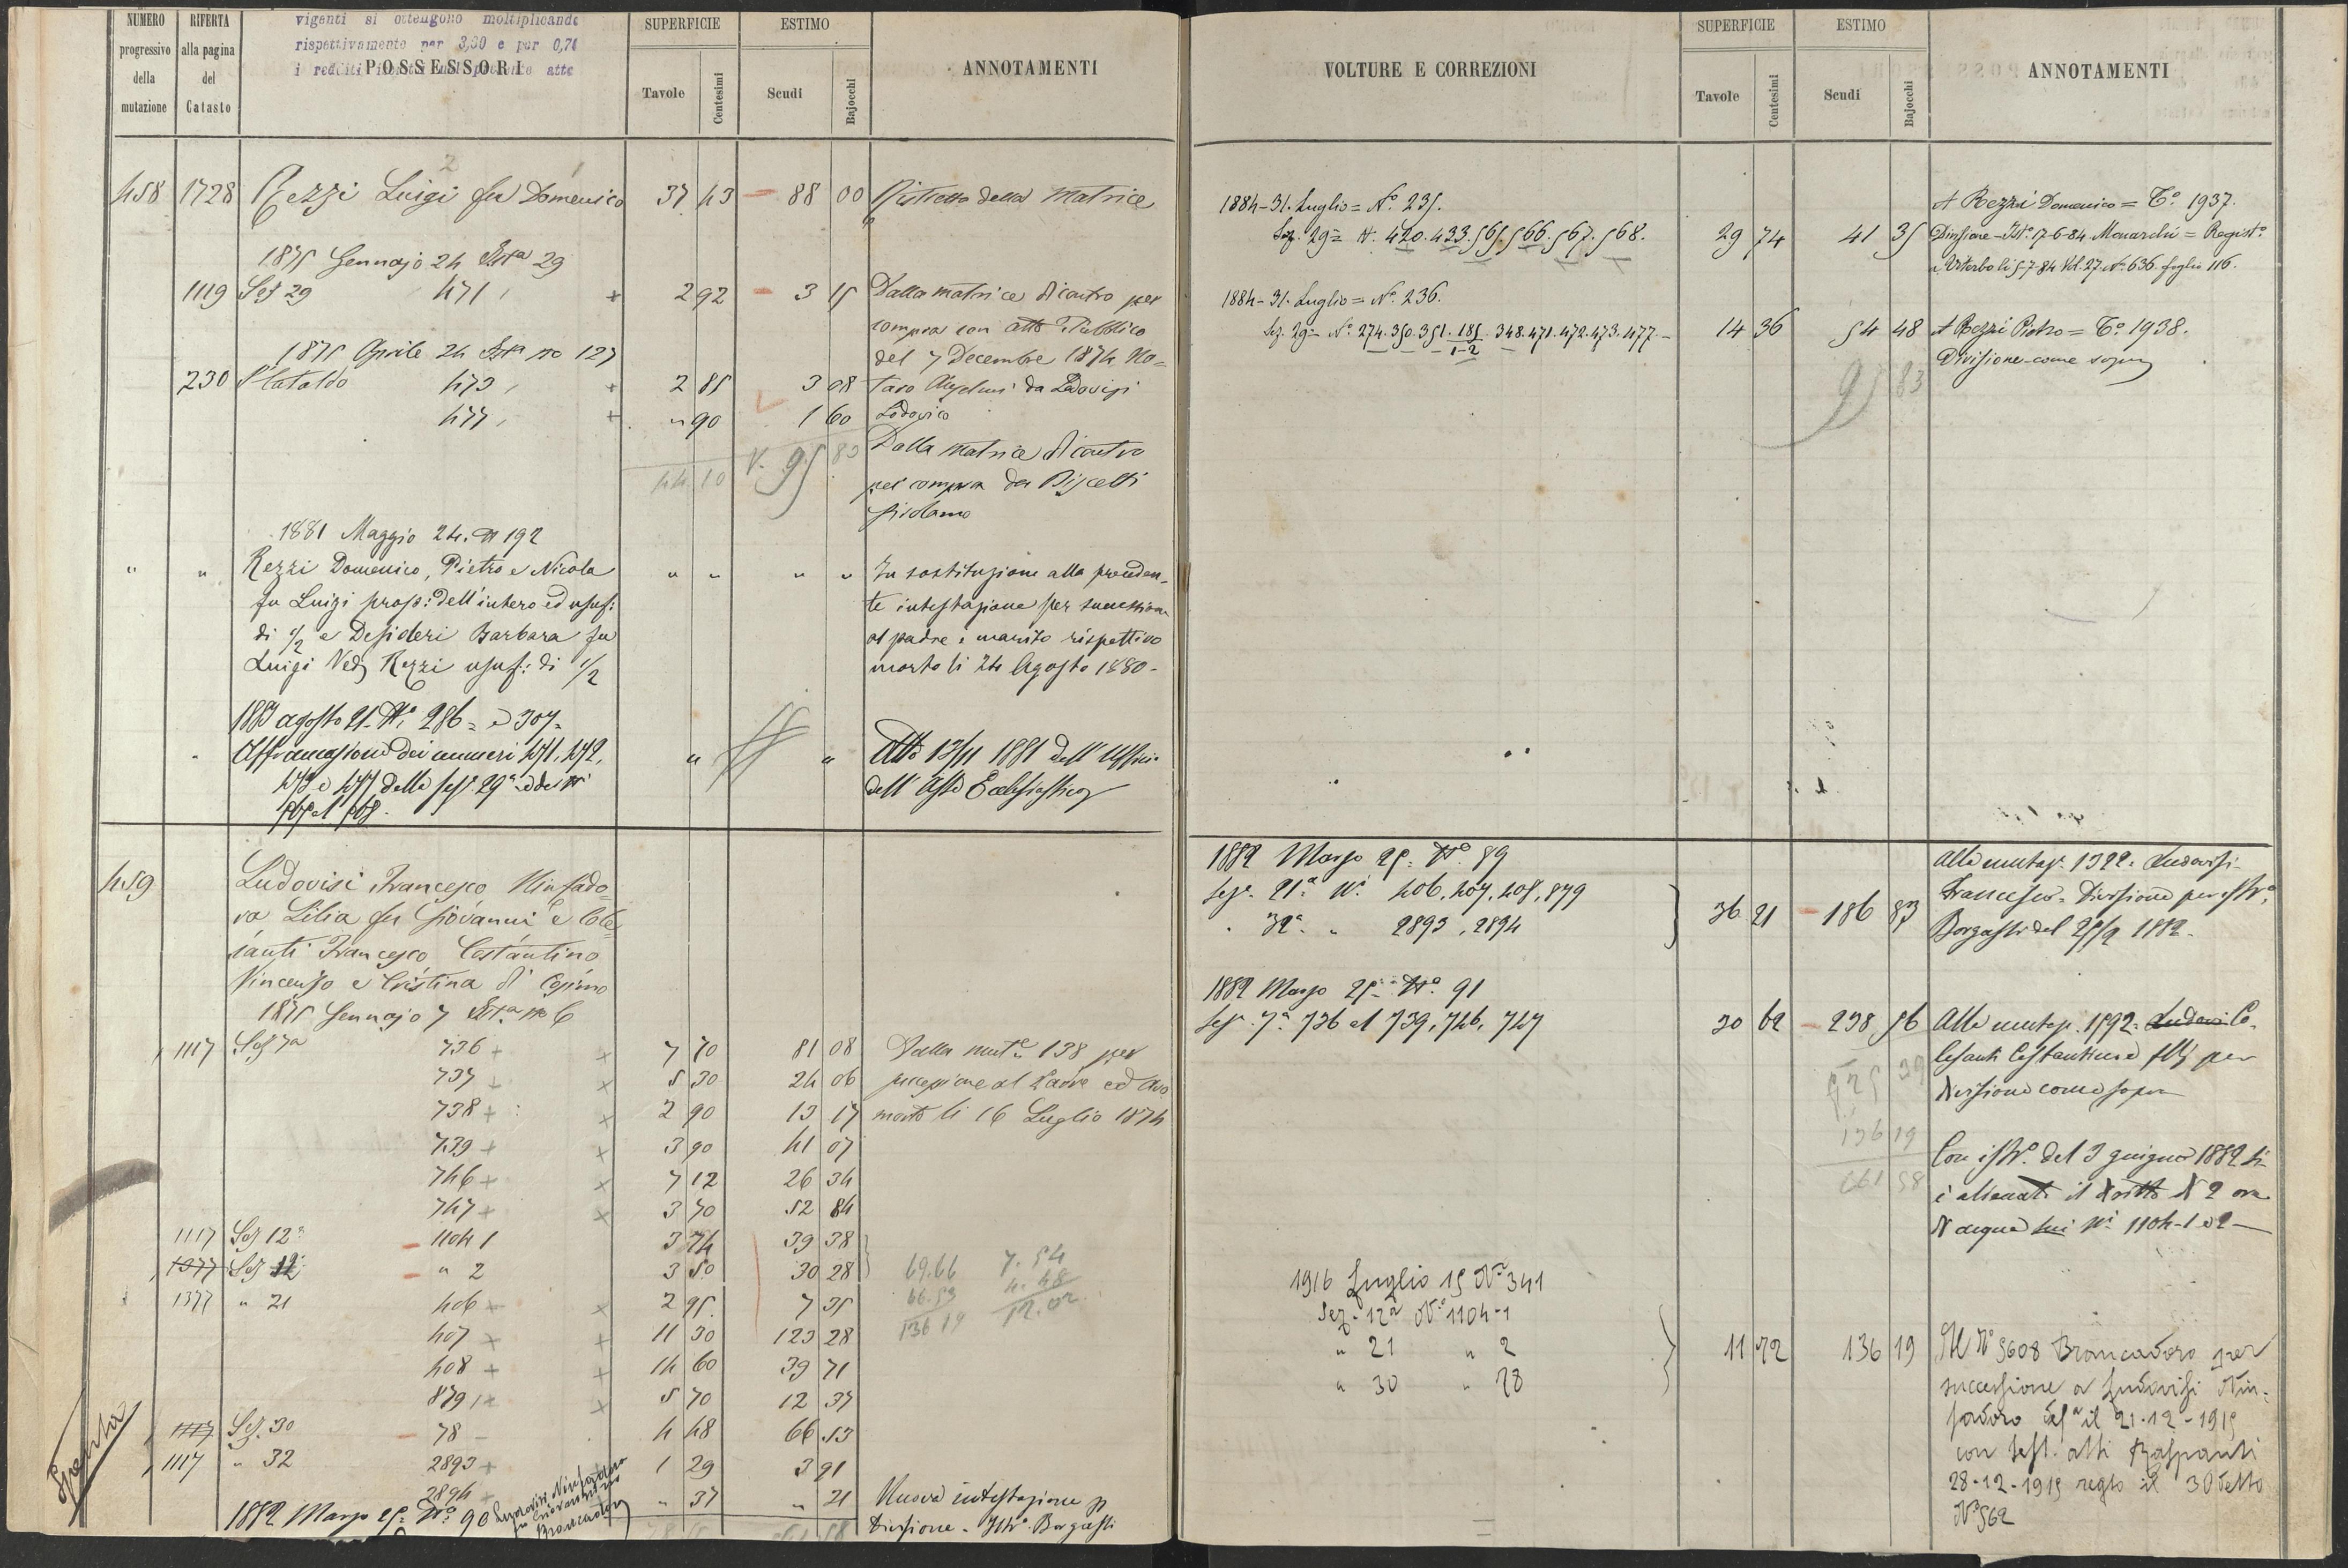 NUMERO progressivo della mutazione
RIFERTA alla pagina del Catasto
vigenti si ottengono moltiplicando
rispettivamente per 3,30 e per 0,70
POSSESSORI
SUPERFICIE
Tavole
Centesimi
ESTIMO
Scudi
Bajocchi
ANNOTAMENTI
458 1728 Rezzi Luigi fu Domenico 37 43 88 00 Ristretto della Matrice
1875 Gennajo 24 29
1119 Sez 29 471 + 2 92 3 15 Dalla matrice di contro per
compra con atto Pubblico
1875 Aprile 24 no 127 del 7 Decembre 1874 No=
230 S Cataldo 473 + 2 85 3 08 taro Anselmi da Ludovisi
477 + " 90 1 60 Lodovico
44.10 95 83 Dalla matrice di contro
per compra da
Girolamo
1881 Maggio 24. N 192
" " Rezzi Domenico, Pietro e Nicola " " " " In sostituzione alla preceden-
fu Luigi prop: dell'intero ed usuf: te intestazione per successione
di 1/2 e Desideri Barbara fu al padre e marito rispettivo
Luigi Ved Rezzi usuf: di 1/2 morto li 24 Agosto 1880-
1883 agosto 21. No 286 = e 307=
Affrancazione dei numeri 471, 472, " " Atto 13/11 1881 dell'Ufficio
473 e 477 della sez. 29a e dei ni dell'Asse Ecclesiastico
565 al 568.
459 Ludovisi Francesco Ninfado=
ra Lilia fu Giovanni e Cole=
santi Francesco Costantino
Vincenzo e Cristina di Cosimo
1875 Gennajo 7 no 6
1117 Sez 7a 736 + × 7 70 81 08 Dalla muta 138 per
737 + × 5 30 24 06 successione al Padre ed Avo
738 + × 2 90 13 17 morto li 16 Luglio 1874
739 + × 3 90 41 07
746 + × 7 12 26 34
747 + × 3 70 52 84
1117 Sez 12a 1104 1 3 74 39 38
1377 Sez 12 " 2 3 50 30 28
1377 " 21 406 × 2 95 7 35
407 × + 11 30 123 28
408 + + 14 60 39 71
879 × 5 70 12 37
1117 Sez. 30 78 4 48 66 53
1117 " 32 2893 + 1 29 3 91
2894 " 37 " 21
69.66 7.54
66.53 4.48
136 19 12.02
Spenta
1882 Marzo 25. No 90 Ludovisi Ninfadora
fu Giovanni in
Brancadoro
Nuova intestazione p
Divisione. Istro. Borgassi
VOLTURE E CORREZIONI
SUPERFICIE
Tavole
Centesimi
ESTIMO
Scudi
Bajocchi
ANNOTAMENTI
1884-31. Luglio = No. 235. A Rezzi Domenico = Co. 1937.
Sez. 29a N. 420.433.565.566.567.568. 29 74 41 35 Divisione-Isto. 17-6-84 Monarchi = Registo.
a Viterbo li 5-7-84 Vol. 27. No. 636. foglio 116.
1884-31. Luglio = No. 236.
Sez. 29a No. 274.350.351.185/1-2 348.471.472.473.477.- 14 36 54 48 A Rezzi Pietro = Co. 1938.
Divisione come sopra
95 83
1882 Marzo 25. No. 89 Alla mutaz. 1322. Ludovisi
Seze. 21a Ni. 406, 407, 408, 879 Francesco. Divisione per istro.
" 32a " 2893, 2894 36 21 186 83 Borgassi del 25/2 1882.
1882 Marzo 25. No. 91
Seze. 7a 736 al 739, 746, 747 30 62 238 56 Alla mutaz. 1592. Ludovi Co-
lesanti Costantino e fllj per
Divisione come sopra
425 39
136 19
561 58
Con istro. del 3 giugno 1882 si
è alienato il diritto di 2 ore
di acqua Ni 1104-1 e 2
1916 Luglio 15 No 341
Sez. 12a No 1104-1
" 21 " 2 11 72 136 19 Al No 5608 Brancadoro per
" 30 " 78 successione a Ludovisi Nin-
fadoro il 21-12-1915
con test. atti Raspanti
28-12-1915 regto il 30 detto
No 562